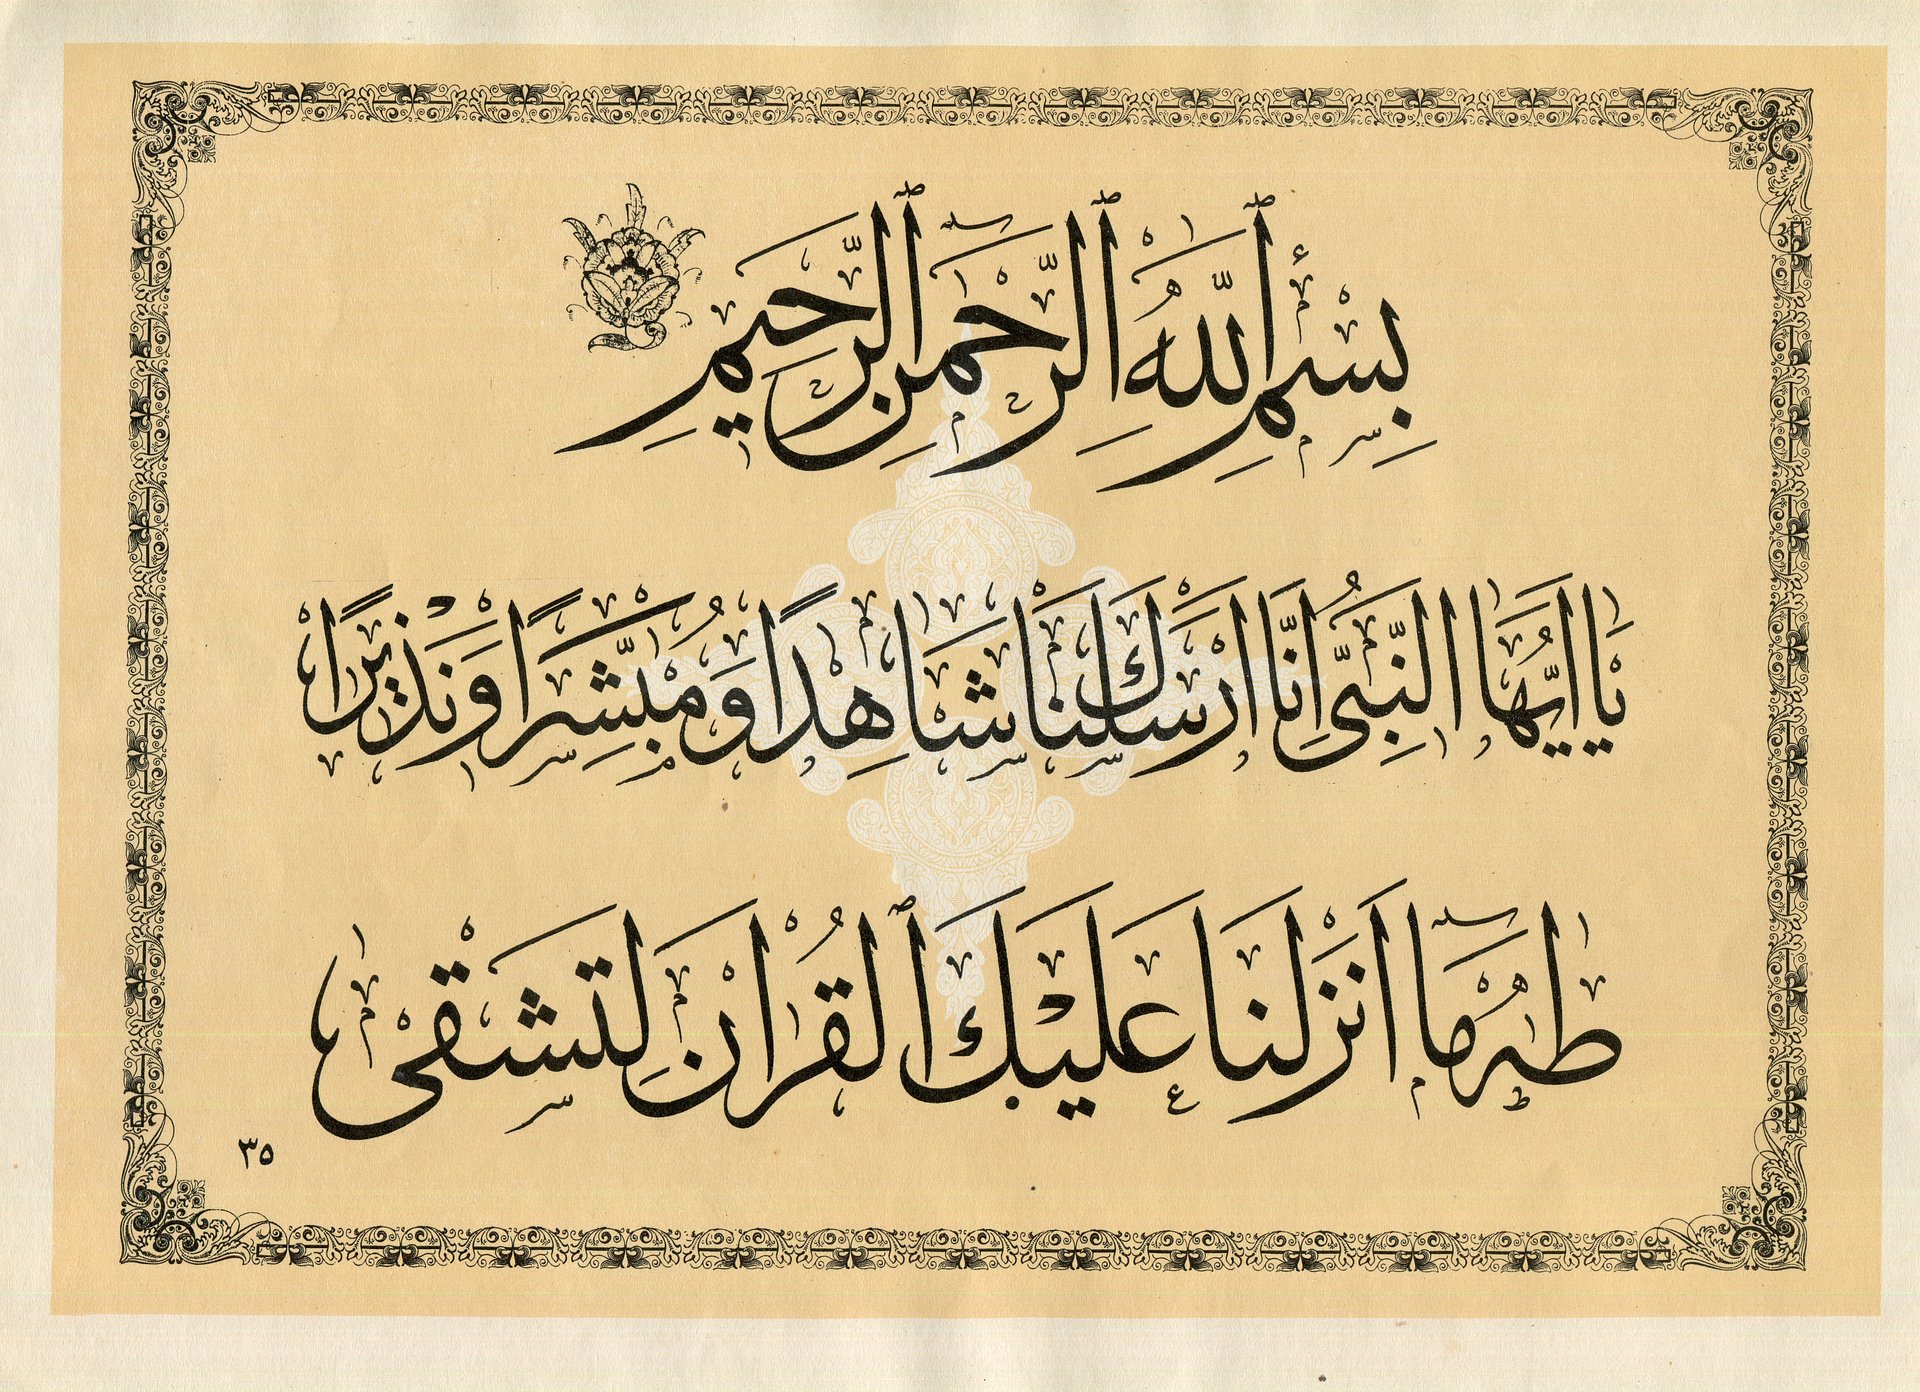 بِسْمِ ٱللَّهِ ٱلرَّحْمَٰنِ ٱلرَّحِيمِ
يَا أَيُّهَا النَّبِيُّ إِنَّا أَرْسَلْنَاكَ شَاهِدًا وَمُبَشِّرًا وَنَذِيرًا
طٰهٰ مَا أَنْزَلْنَا عَلَيْكَ ٱلْقُرْاٰنَ لِتَشْقٰى
٣٥